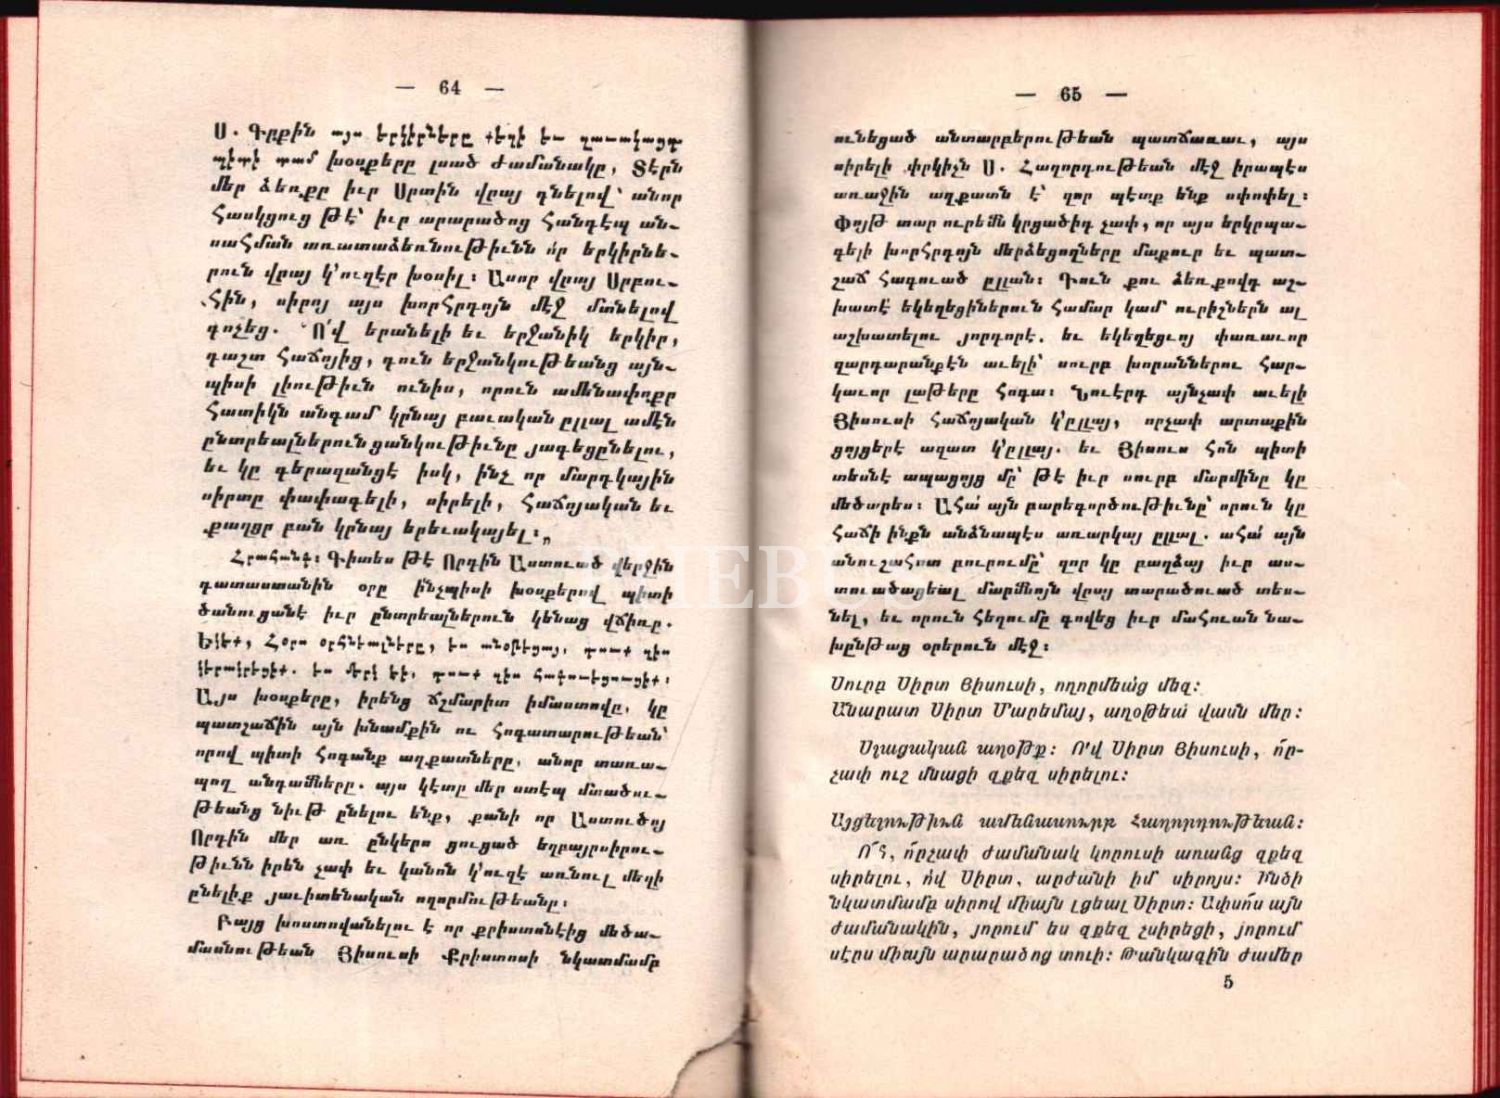 — 64 —
Ս. Գրքին այս երկիրները քեզի եւ զաւակացդ
պիտի տամ խօսքերը լսած ժամանակը, Տէրն
մեր ձեռքը իւր Սրտին վրայ դնելով՝ անոր
հասկցուց թէ՝ իւր արարածոց հանդէպ ան-
սահման առատաձեռնութիւնն ո՛ր երկիրնե-
րուն վրայ կ՚ուզէր խօսիլ։ Ասոր վրայ Սրբու-
հին, սիրոյ այս խորհրդոյն մէջ մտնելով
գոչեց. Ո՛վ երանելի եւ երջանիկ երկիր,
դաշտ հաճոյից, դուն երջանկութեանց այն-
պիսի լիութիւն ունիս, որուն ամենափոքր
հատիկն անգամ կրնայ բաւական ըլլալ ամէն
ընտրեալներուն ցանկութիւնը յագեցընելու,
եւ կը գերազանցէ իսկ, ինչ որ մարդկային
սիրտը փափագելի, սիրելի, հաճոյական եւ
քաղցր բան կրնայ երեւակայել։„
Հրահանգ։ Գիտես թէ Որդին Աստուած վերջին
դատաստանին օրը ինչպիսի խօսքերով պիտի
ծանուցանէ իւր ընտրեալներուն կենաց վճիռը.
Եկէք, Հօրս օրհնեալները, ես անօթեցայ, տուաք ինձ
կերակրեցիք. ես մերկ էի,
Այս խօսքերը, իրենց ճշմարիտ իմաստովը, կը
պատշաճին այն խնամքին ու հոգատարութեան՝
որով պիտի հոգանք աղքատները, անոր տառա-
պող անդամները. այս կէտը մեր ստէպ մտածու-
թեանց նիւթ ընելու ենք, քանի որ Աստուծոյ
Որդին մեր առ ընկերս ցուցած եղբայրսիրու-
թիւնն իրեն չափ եւ կանոն կ՚ուզէ առնուլ մեզի
ընելիք յաւիտենական ողորմութեանը։
Բայց խոստովանելու է որ քրիստոնէից մեծա-
մասնութեան Յիսուսի Քրիստոսի նկատմամբ
— 65 —
ունեցած անտարբերութեան պատճառաւ, այս
սիրելի փրկիչն Ս. Հաղորդութեան մէջ իրապէս
առաջին աղքատն է՝ զոր պէտք ենք սփոփել։
Փոյթ տար ուրեմն կրցածիդ չափ, որ այս երկրպա-
գելի խորհրդոյն մերձեցողները մաքուր եւ պատ-
շաճ հագուած ըլլան։ Դուն քու ձեռքովդ աշ-
խատէ՛ եկեղեցիներուն համար կամ ուրիշներն ալ
աշխատելու յորդորէ. եւ եկեղեցւոյ փառաւոր
զարդարանքէն աւելի՝ սուրբ խորաններու հար-
կաւոր լաթերը հոգա։ Նուէրդ այնչափ աւելի
Յիսուսի հաճոյական կ՚ըլլայ, որչափ արտաքին
ցոյցերէ ազատ կ՚ըլլայ. եւ Յիսուս հոն պիտի
տեսնէ ապացոյց մը՝ թէ իւր սուրբ մարմինը կը
մեծարես։ Ահա՛ այն բարեգործութիւնը՝ որուն կը
հաճի ինքն անձնապէս առարկայ ըլլալ. ահա՛ այն
անուշահոտ բուրումը՝ զոր կը բաղձայ իւր աս-
տուածացեալ մարմնոյն վրայ տարածուած տես-
նել, եւ որուն հեղումը գովեց իւր մահուան նա-
խընթաց օրերուն մէջ։
Սուրբ Սիրտ Յիսուսի, ողորմեա՛ց մեզ։
Անարատ Սիրտ Մարեմայ, աղօթեա՛ վասն մեր։
Սլացական աղօթք։ Ո՛վ Սիրտ Յիսուսի, ո՜ր-
չափ ուշ մնացի զքեզ սիրելու։
Այցելութիւն ամենասուրբ Հաղորդութեան։
Ո՜հ, ո՜րչափ ժամանակ կորուսի առանց զքեզ
սիրելու, ո՛վ Սիրտ, արժանի իմ սիրոյս։ Ինծի
նկատմամբ սիրով միայն լցեալ Սիրտ։ Ափսո՜ս այն
ժամանակին, յորում ես զքեզ չսիրեցի, յորում
սէրս միայն արարածոց տուի։ Թանկագին ժամեր
5